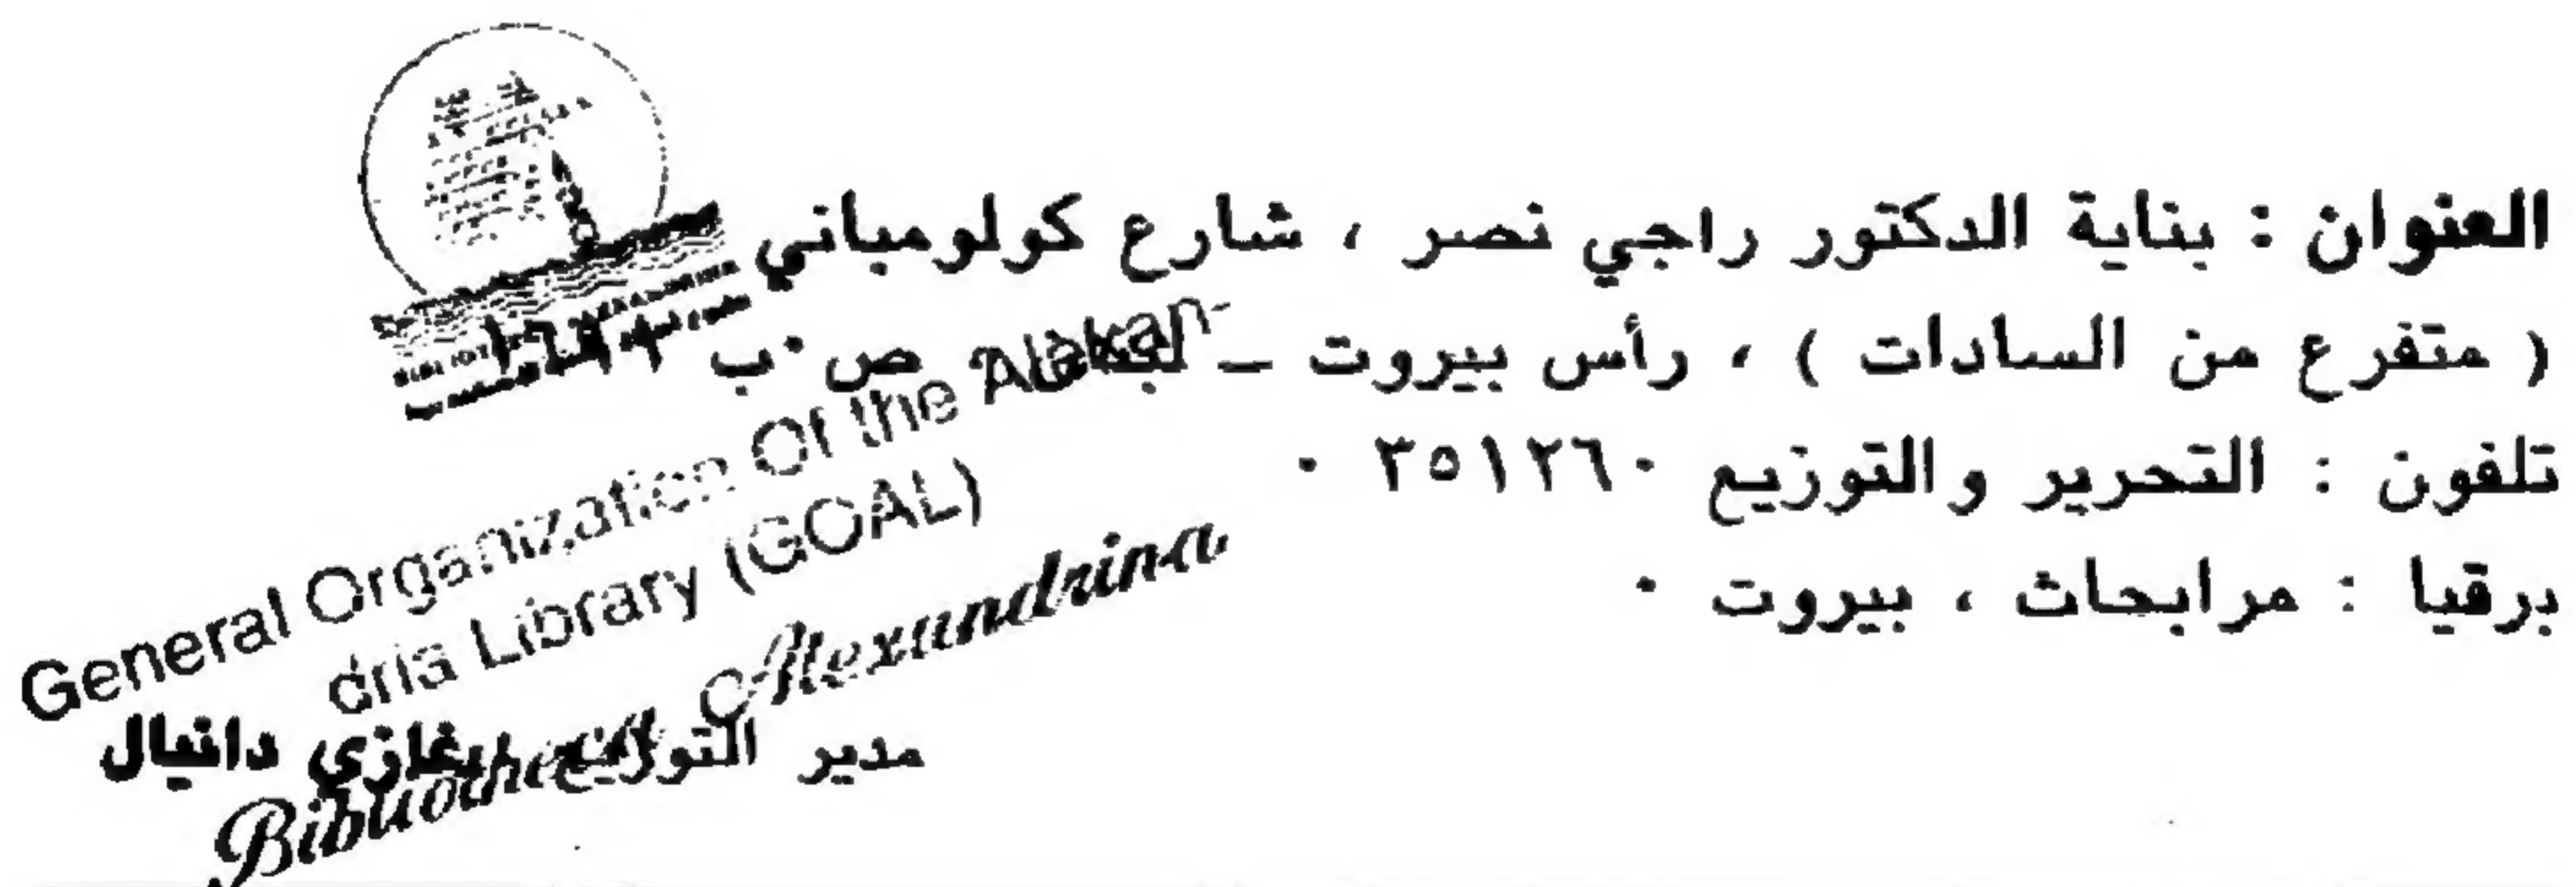 العنوان : بناية الدكتور راجي نصر ، شارع كولومباني
( متفرع من السادات ) ، رأس بيروت – لبنان ص٠ب
تلفون : التحرير والتوزيع ٣٥١٢٦٠ ٠
برقيا : مرابحاث ، بيروت ٠
مدير التوزيع غازي دانيال
General Organization Of the Alexan-
dria Library (GOAL)
Bibliotheca Alexandrina